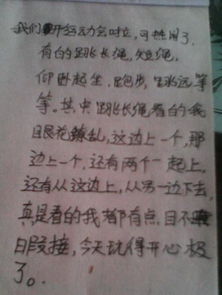 我们开运动会时,可热闹了。
有的跳长绳,短绳,
仰卧起坐,跑步,跳远等
等。其中跳长绳看的我
眼花缭乱,这边上一个,那
边上一个,还有两个一起上,
还有从这边上,从另一边下去,
真是看的我都有点目不
暇接,今天玩得开心极
了。